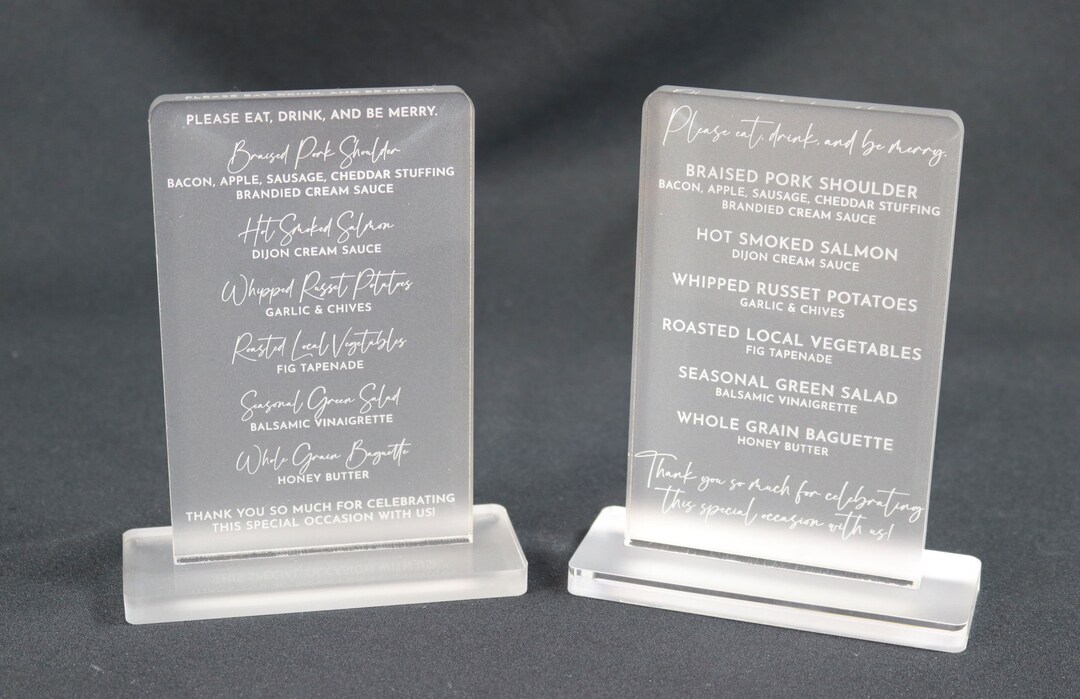 PLEASE EAT, DRINK, AND BE MERRY.
Braised Pork Shoulder
BACON, APPLE, SAUSAGE, CHEDDAR STUFFING
BRANDIED CREAM SAUCE
Hot Smoked Salmon
DIJON CREAM SAUCE
Whipped Russet Potatoes
GARLIC & CHIVES
Roasted Local Vegetables
FIG TAPENADE
Seasonal Green Salad
BALSAMIC VINAIGRETTE
Whole Grain Baguette
HONEY BUTTER
THANK YOU SO MUCH FOR CELEBRATING
THIS SPECIAL OCCASION WITH US!
Please eat, drink, and be merry.
BRAISED PORK SHOULDER
BACON, APPLE, SAUSAGE, CHEDDAR STUFFING
BRANDIED CREAM SAUCE
HOT SMOKED SALMON
DIJON CREAM SAUCE
WHIPPED RUSSET POTATOES
GARLIC & CHIVES
ROASTED LOCAL VEGETABLES
FIG TAPENADE
SEASONAL GREEN SALAD
BALSAMIC VINAIGRETTE
WHOLE GRAIN BAGUETTE
HONEY BUTTER
Thank you so much for celebrating
this special occasion with us!